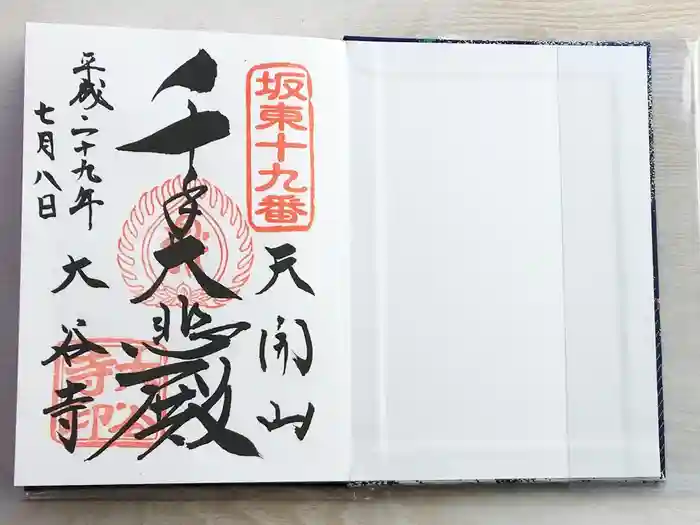 坂東十九番
天開山
千手大悲殿
大谷寺
平成二十九年
七月八日